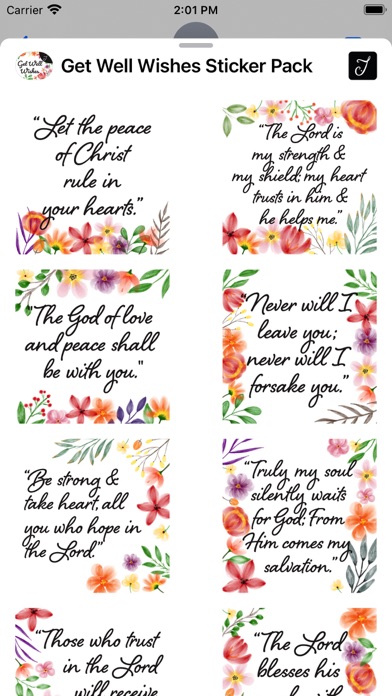 Carrier 2:01 PM
Get Well Wishes
Get Well Wishes Sticker Pack
“Let the peace
of Christ
rule in
your hearts.”
“The Lord is
my strength &
my shield; my heart
trusts in him &
he helps me.”
“The God of love
and peace shall
be with you."
“Never will I
leave you;
never will I
forsake you.”
“Be strong &
take heart, all
you who hope in
the Lord.”
“Truly my soul
silently waits
for God; From
Him comes my
salvation.”
“Those who trust
in the Lord
will receive
“The Lord
blesses his